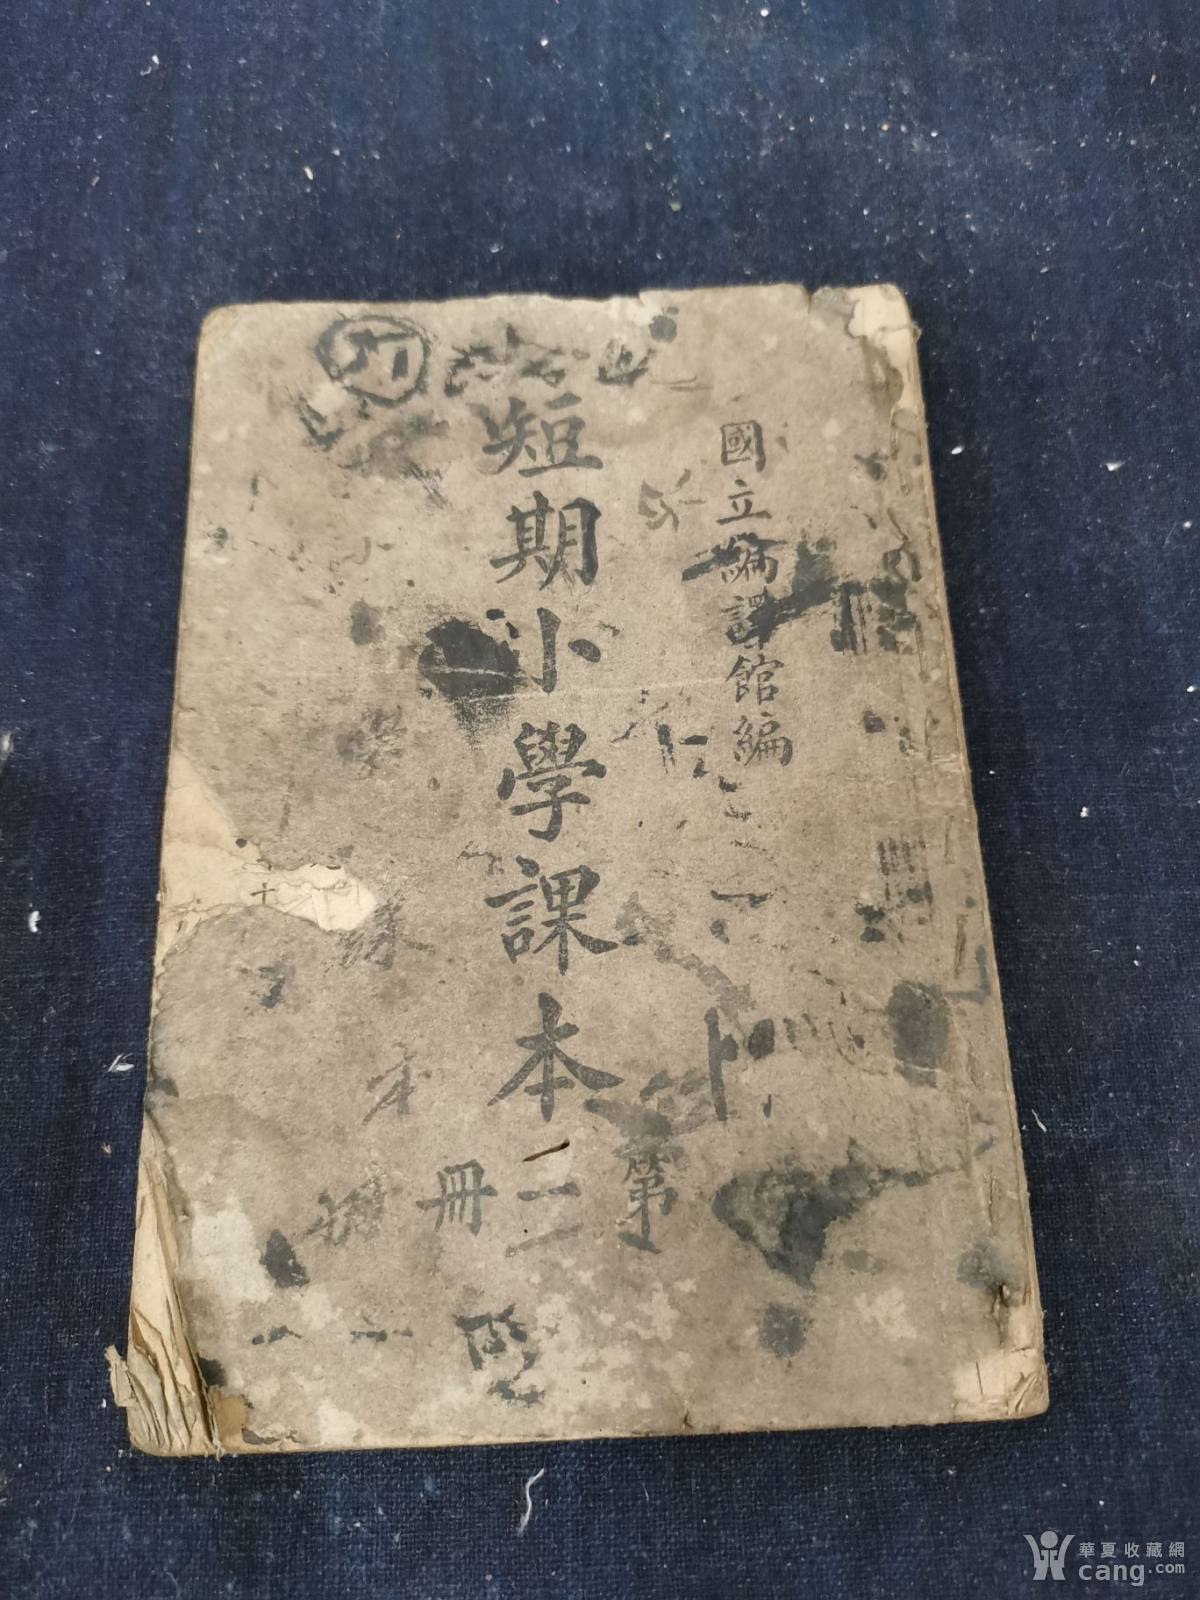 國立編譯館編
短期小學課本
第二冊
十
華夏收藏網
cang.com